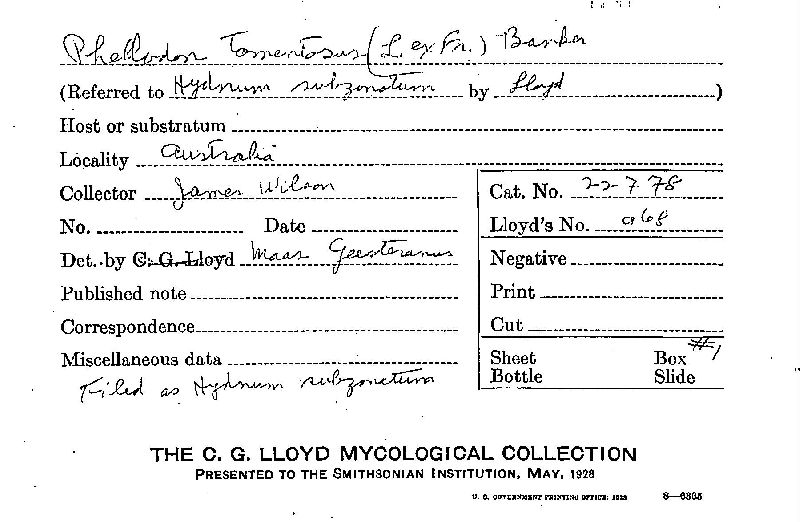 Phellodon Tomentosus (L. ex Fr.) Banker
(Referred to Hydnum subzonatum by Lloyd)
Host or substratum
Locality Australia
Collector James Wilson
No. Date
Det. by C. G. Lloyd Maas Geesteranus
Published note
Correspondence
Miscellaneous data
Filed as Hydnum subzonatum
Cat. No. 22778
Lloyd's No. 968
Negative
Print
Cut
Sheet Box #1
Bottle Slide
THE C. G. LLOYD MYCOLOGICAL COLLECTION
PRESENTED TO THE SMITHSONIAN INSTITUTION, MAY, 1928
U. S. GOVERNMENT PRINTING OFFICE: 1928 8—6395